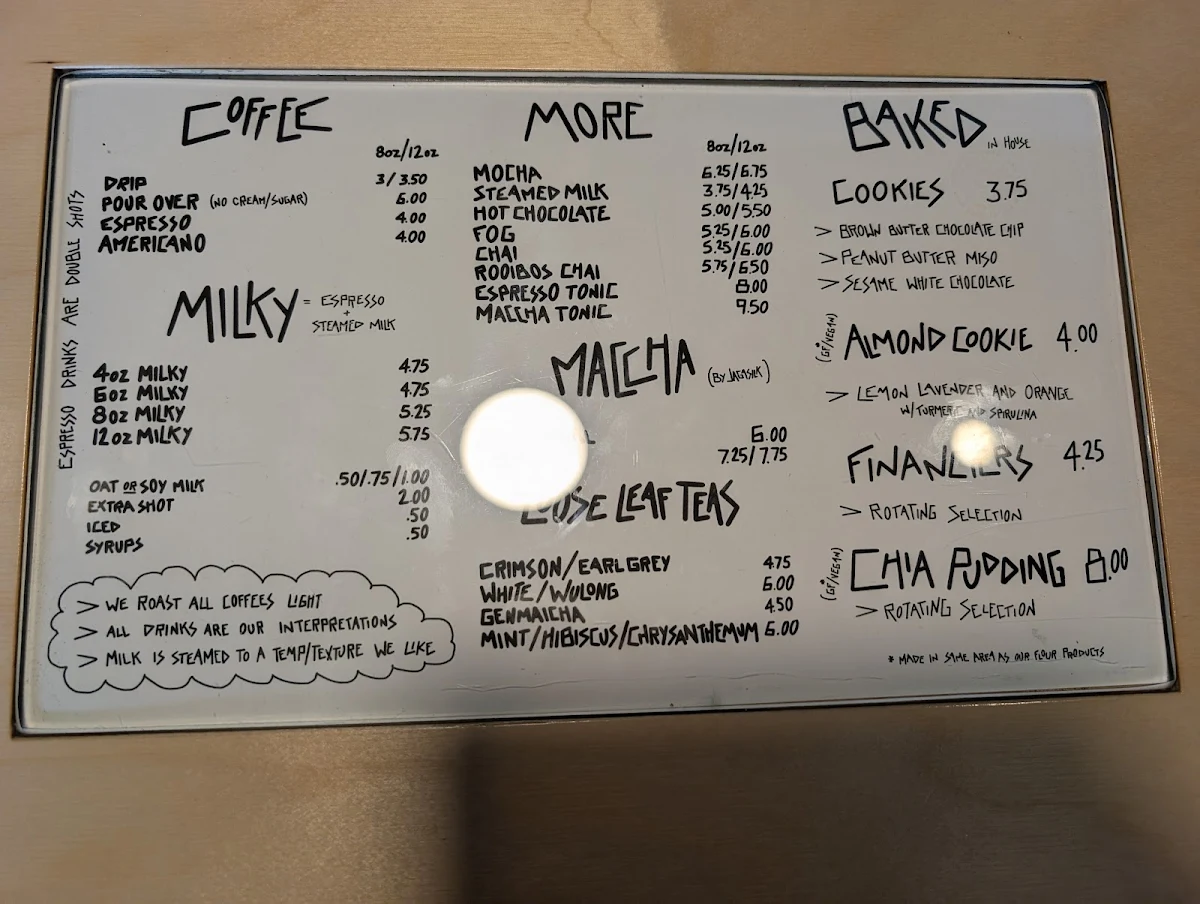 COFFEE
8oz/12oz
DRIP 3/3.50
POUR OVER (NO CREAM/SUGAR) 6.00
ESPRESSO 4.00
AMERICANO 4.00
ESPRESSO DRINKS ARE DOUBLE SHOTS
MILKY = ESPRESSO
+
STEAMED MILK
4oz MILKY 4.75
6oz MILKY 4.75
8oz MILKY 5.25
12oz MILKY 5.75
OAT OR SOY MILK .50/.75/1.00
EXTRA SHOT 2.00
ICED .50
SYRUPS .50
> WE ROAST ALL COFFEES LIGHT
> ALL DRINKS ARE OUR INTERPRETATIONS
> MILK IS STEAMED TO A TEMP/TEXTURE WE LIKE
MORE
8oz/12oz
MOCHA 6.25/6.75
STEAMED MILK 3.75/4.25
HOT CHOCOLATE 5.00/5.50
FOG 5.25/6.00
CHAI 5.25/6.00
ROOIBOS CHAI 5.75/6.50
ESPRESSO TONIC 8.00
MACCHA TONIC 9.50
MACCHA (BY JAGASILK)
6.00
7.25/7.75
LOOSE LEAF TEAS
CRIMSON/EARL GREY 4.75
WHITE/WULONG 6.00
GENMAICHA 4.50
MINT/HIBISCUS/CHRYSANTHEMUM 6.00
BAKED IN HOUSE
COOKIES 3.75
> BROWN BUTTER CHOCOLATE CHIP
> PEANUT BUTTER MISO
> SESAME WHITE CHOCOLATE
(GF*/VEGAN) ALMOND COOKIE 4.00
> LEMON LAVENDER AND ORANGE
W/TURMERIC AND SPIRULINA
FINANCIERS 4.25
> ROTATING SELECTION
(GF*/VEGAN) CHIA PUDDING 8.00
> ROTATING SELECTION
* MADE IN SAME AREA AS OUR FLOUR PRODUCTS